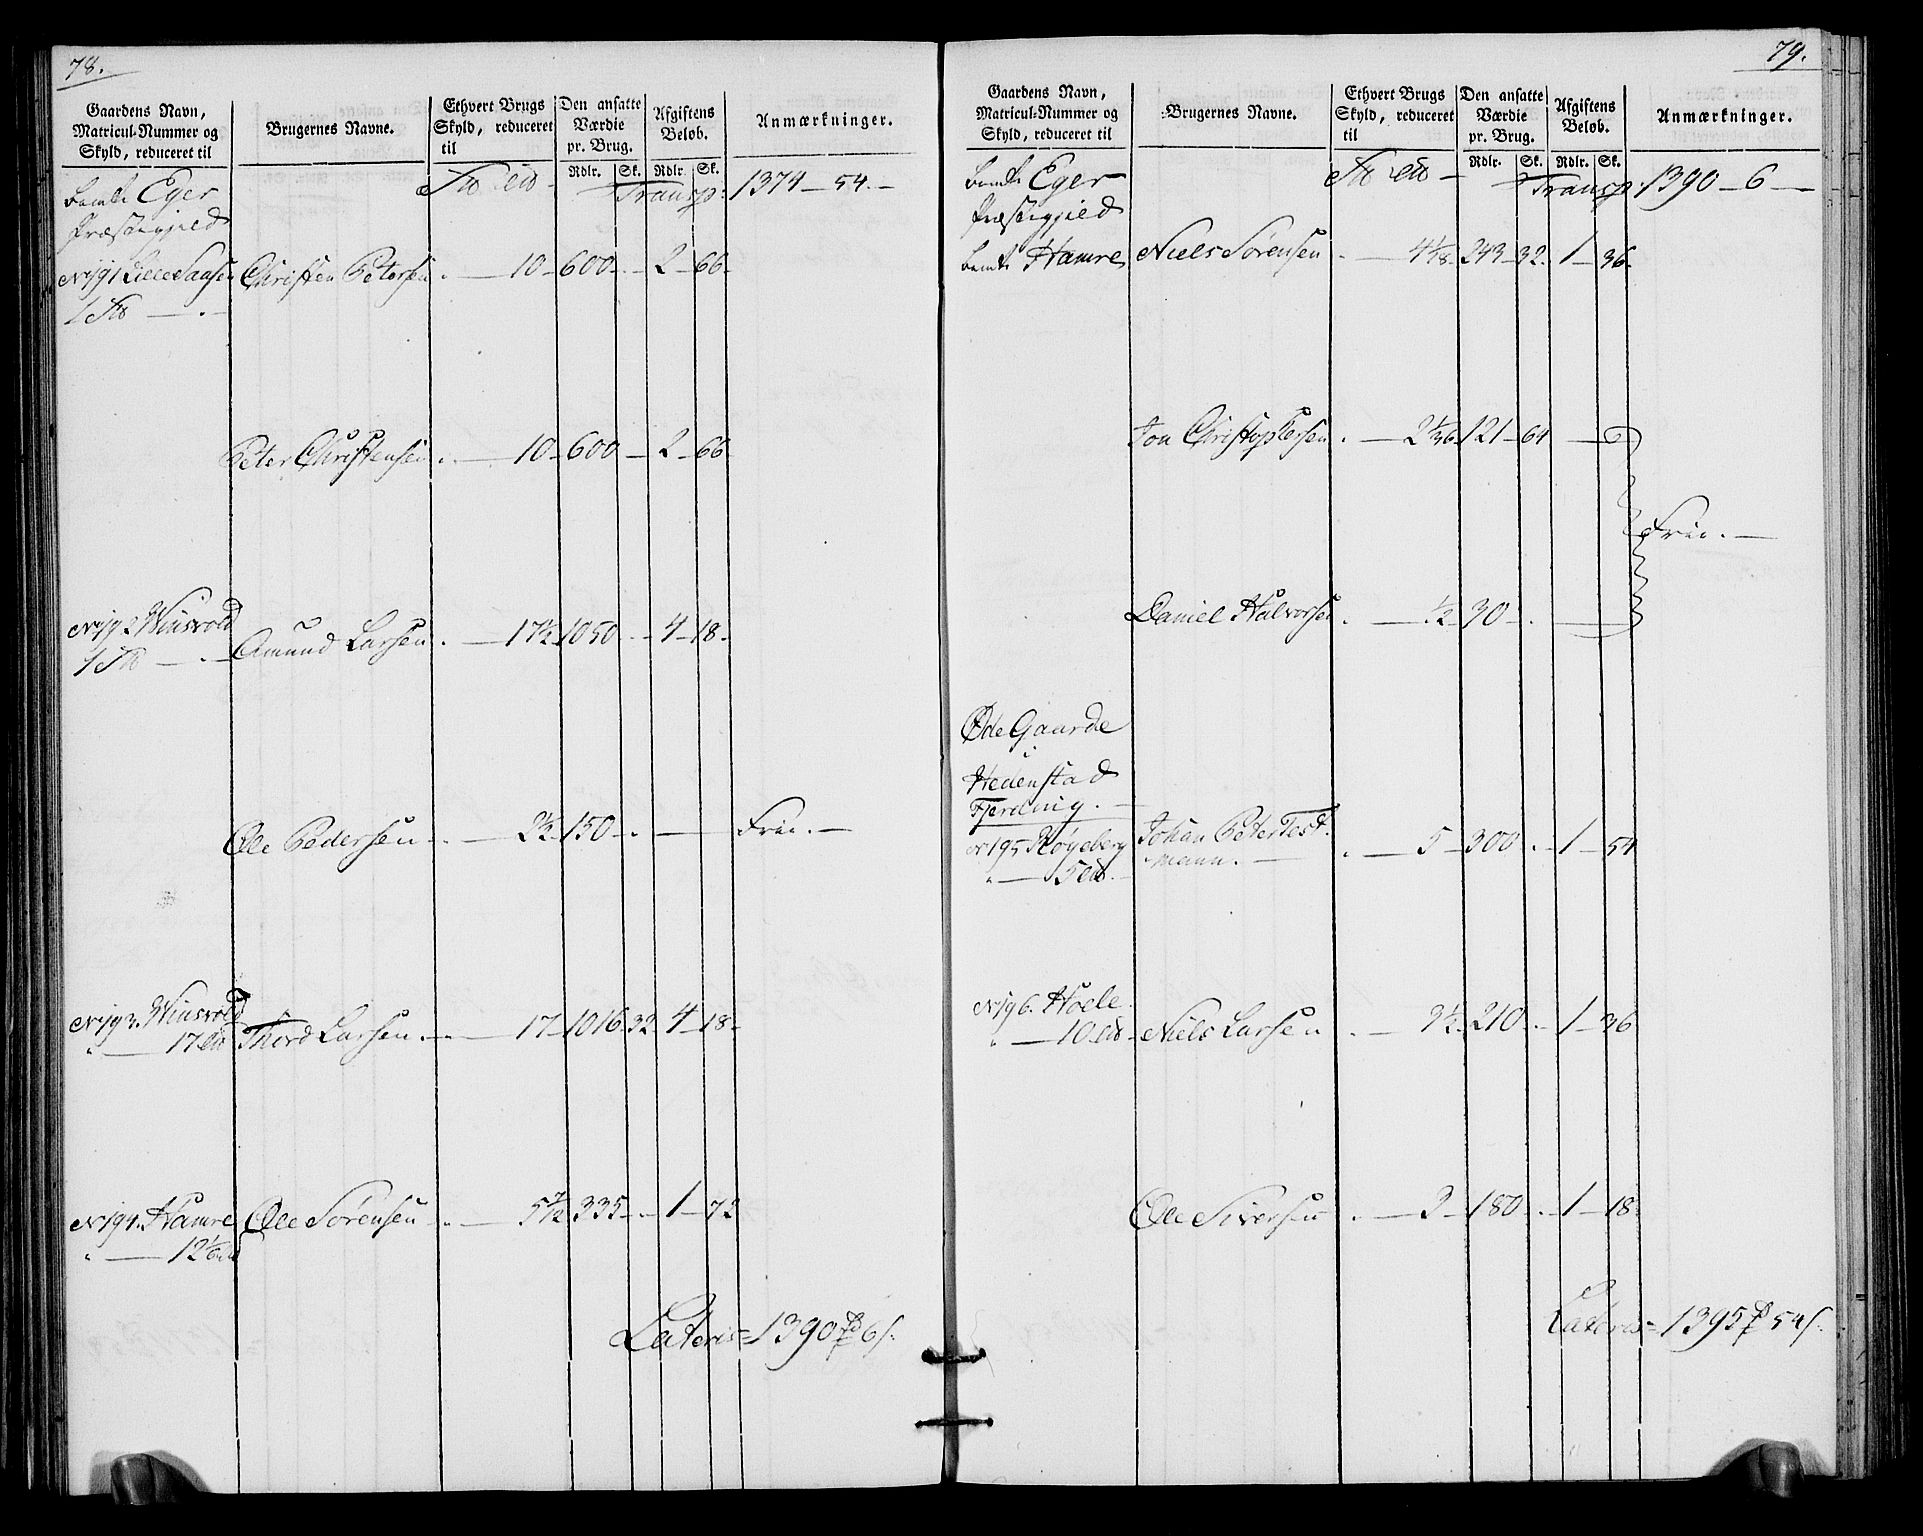 78.
Gaardens Navn,
Matricul-Nummer og
Skyld, reduceret til
Brugernes Navne.
Ethvert Brugs
Skyld, reduceret
til
Den ansatte
Værdie
pr. Brug.
Afgiftens
Beløb.
Anmærkninger.
Rdlr. Sk. Rdlr. Sk.
bemte Eger Transp: 1374 - 54. -
Præstegjield
N 191 Lille Saasen Christen Petersen . - 10 - 600 - . - 2 - 66 -
1
Peter Christensen . - 10 - 600 - 2 - 66
N 192 Winsvold
1 Amund Larsen . - 17½ - 1050 . - 4 - 18 -
Ole Pedersen . - 2½ - 150 - . - Frie. -
N 193. Winsvold
" - 17 Thord Larsen . - 17 - 1016 - 32 - 4 - 18 -
N 194. Hamre Ole Sörensen . - 5 7/12 - 335 - . - 1 - 72
" - 12 1/6
Lateris = 1390 6 s.
79.
Gaardens Navn,
Matricul-Nummer og
Skyld, reduceret til
Brugernes Navne.
Ethvert Brugs
Skyld, reduceret
til
Den ansatte
Værdie
pr. Brug.
Afgiftens
Beløb.
Anmærkninger.
Rdlr. Sk. Rdlr. Sk.
bemte Eger Transp. 1390 - 6 -
Præstegjield
bemte Hamre Niels Sörensen . - 4 1/18 - 243 - 32 - 1 - 36 -
Jon Christophersen . - 2 1/36 - 121 - 64
Frie. -
Daniel Halvorsen . - ½ - 30 - .
Øde Gaarde
i
Hedenstad
Fjerding. -
N 195 Røgeberg Johan Peter Test-
" - 5 mann. - . - 5 - 300 - . - 1 - 54
N 196. Hoele
" - 10 Niels Larsen . - 3½ - 210 - . - 1 - 36
Ole Siversen . - 3 - 180 - . - 1 - 18
Lateris = 1395 54 s.